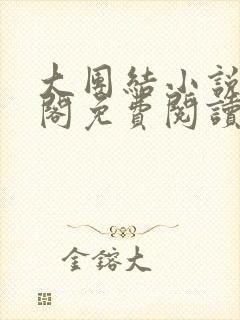 大團結小説
閣免費閱讀
金鎔大